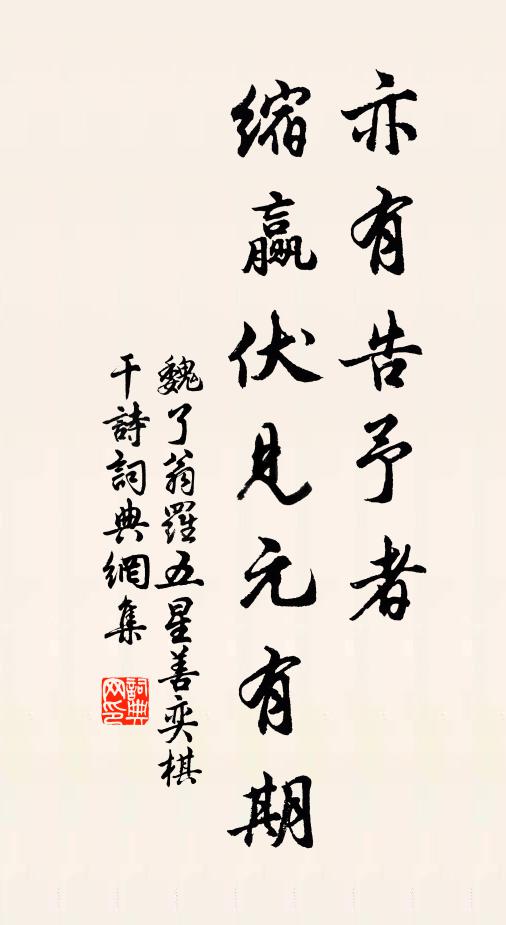 亦有告予者
缩赢伏见元有期
魏了翁羅五星善奕棋
干詩詞典網集
詞典网印